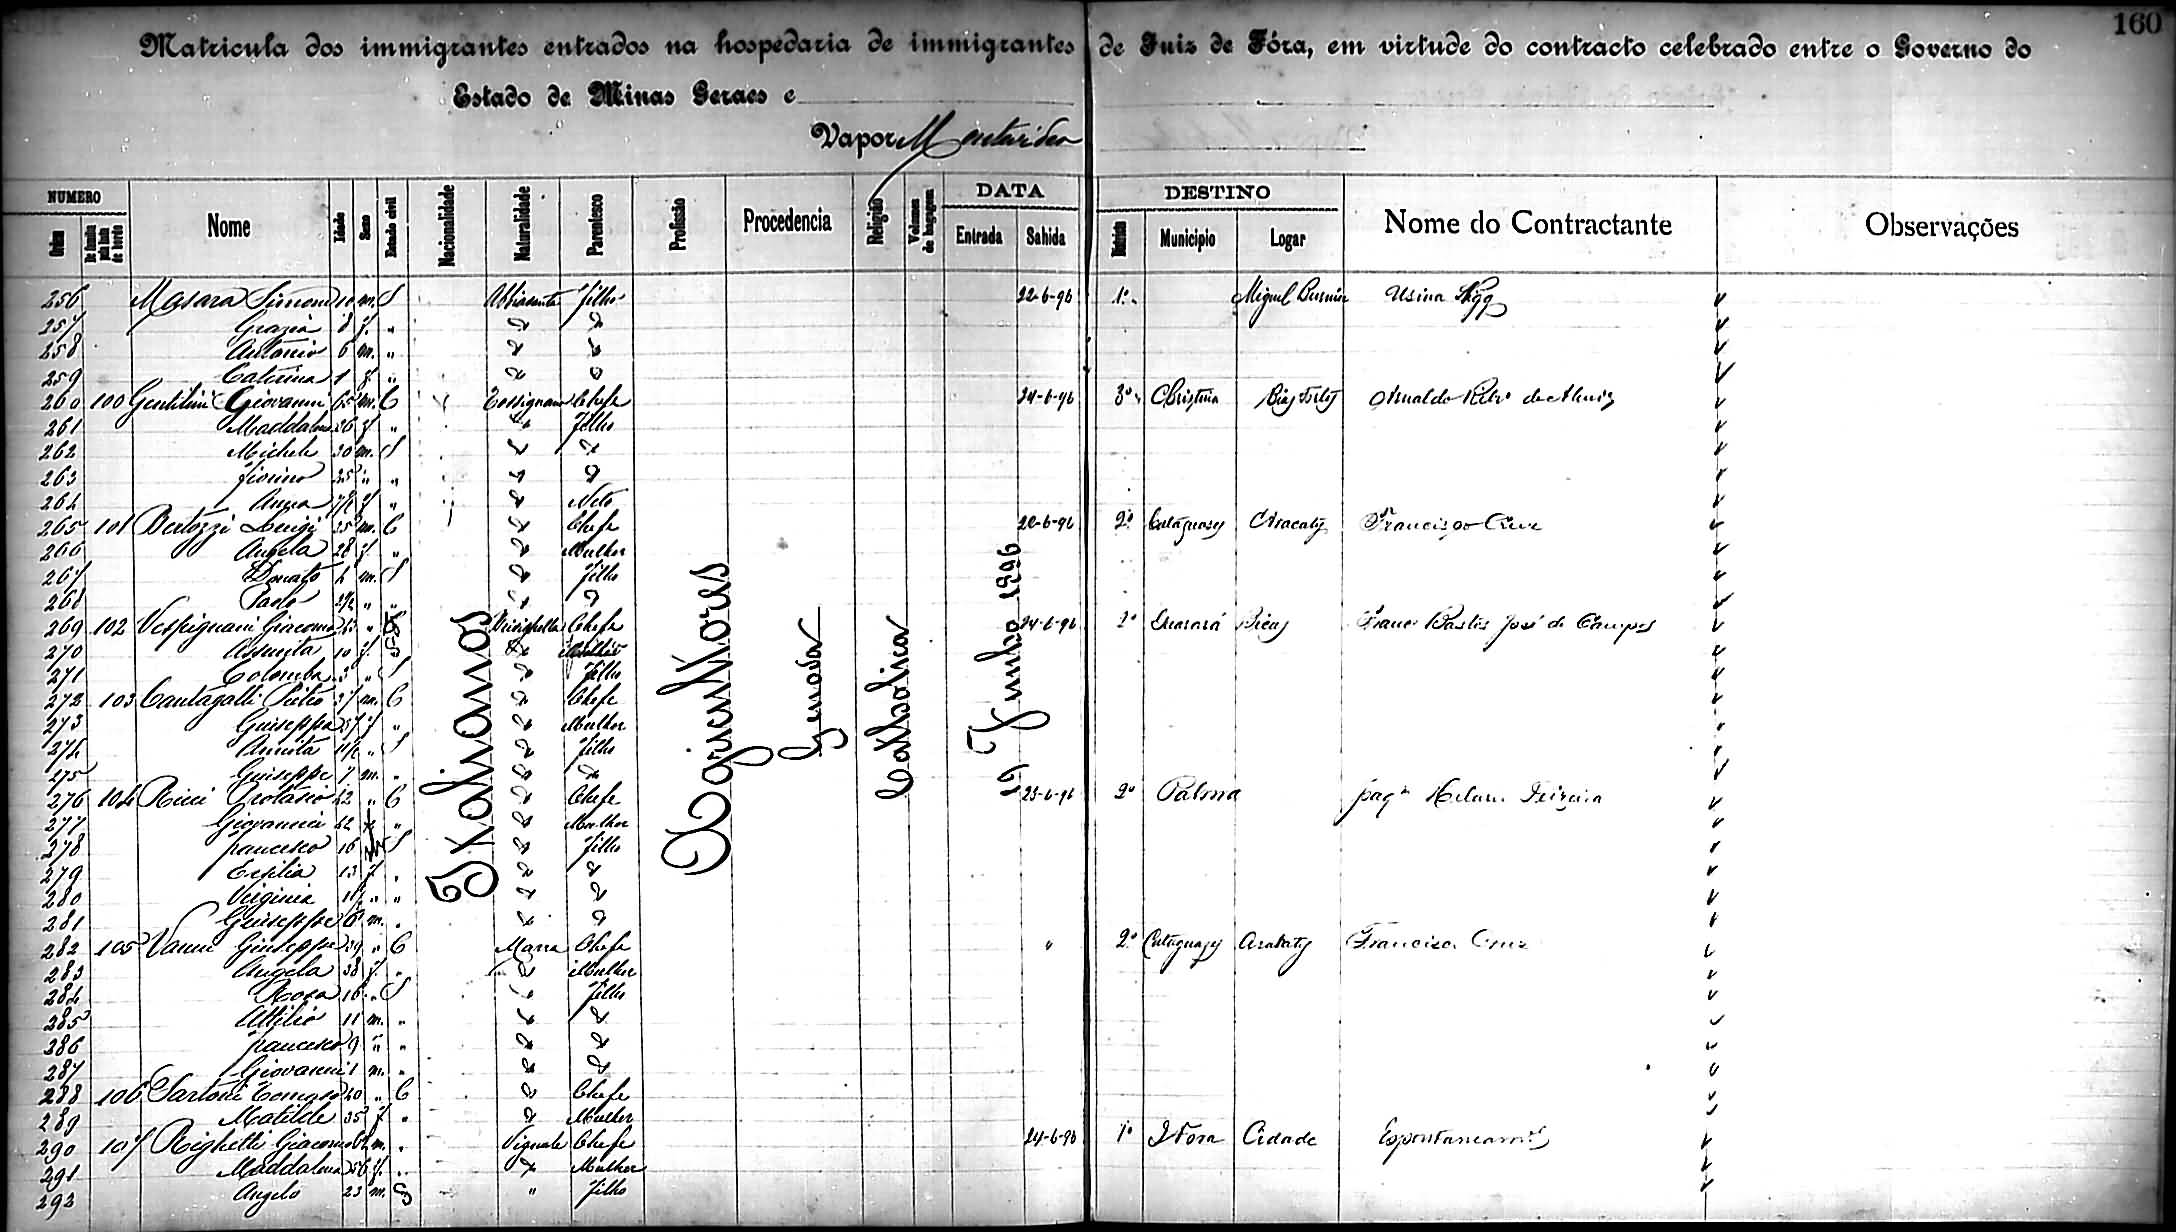 160
Matricula dos immigrantes entrados na hospedaria de immigrantes de Juiz de Fóra, em virtude do contracto celebrado entre o Governo do
Estado de Minas Geraes e
Vapor Montevideo
NUMERO DATA DESTINO
Ordem Nome Idade Sexo Estado civil Nacionalidade Naturalidade Parentesco Profissão Procedencia Religião Volumes de bagagem Entrada Sahida Districto Municipio Logar Nome do Contractante Observações
Italianos Agricultores Genova Catholica 19 Junho 1896
256 Masara Simone 10 m. S filho 22-6-96 1º Miguel Burnier Usina Wigg
257 Grazia 8 f. "
258 Antonio 6 m. "
259 Caterina 1 f. "
260 100 Gentilini Giovanni 65 m. C Tossignano Chefe 24-6-96 3º Christina Bias Fortes Arnaldo
261 Maddalena 26 f "
 Filho
262 Michele 30 m. S
263 Fiorino 25 " "
264 Anna f " Neto
265 101 Bertozzi Luigi 35 m. C Chefe 20-6-96 2º Cataguases Aracaty Francisco Cruz
266 Angela 28 f. " Mulher
267 Donato 4 m. S filho
268 Paolo 2½ " "
269 102 Vespignani Giacomo 43 " Brisighella Chefe 24-6-96 2º Guarará Bicas Franc. Bastos José de Campos
270 Assunta 10 f. S
271 Colomba 3 " S filho
272 103 Cantagalli Pietro 37 m. C Chefe
273 Guiseppa 37 f " Mulher
274 Annita " S filho
275 Guiseppe 7 m. "
276 104 Ricci Protasio 42 " C Chefe 23-6-96 2º Palma Teixeira
277 Giovanna 42 f " Mulher
278 francesco 16 S filho
279 Ersilia 13 f "
280 Virginia 11 " "
281 Guiseppe 6 m. "
282 105 Vanni Giuseppe 39 " C Marra Chefe " 2º Cataguazes Arakaty Francisco Cruz
283 Angela 38 f. " Mulher
284 Rosa 16 " S filho
285 Attilio 11 m. "
286 francesco 9 " "
287 Giovanni 1 m. "
288 106 Sartoni Tomaso 40 " C Chefe
289 Matilde 35 f " Mulher
290 107 Righetti Giacomo m. " Vignale Chefe 24-6-96 1º J Fora Cidade Espontaneamte
291 Maddalena 56 f. " Mulher
292 Angelo 23 m. S " filho